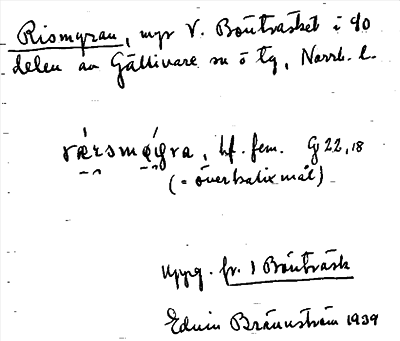 Rismyran, myr V. Bönträsket i sö
delen av Gällivare sn ö tg, Norrb. l.
rærsmøgra, bf. fem. G 22,18
(= överkalixmål)
Uppg. fr. 1 Bönträsk
Edvin Brännström 1939